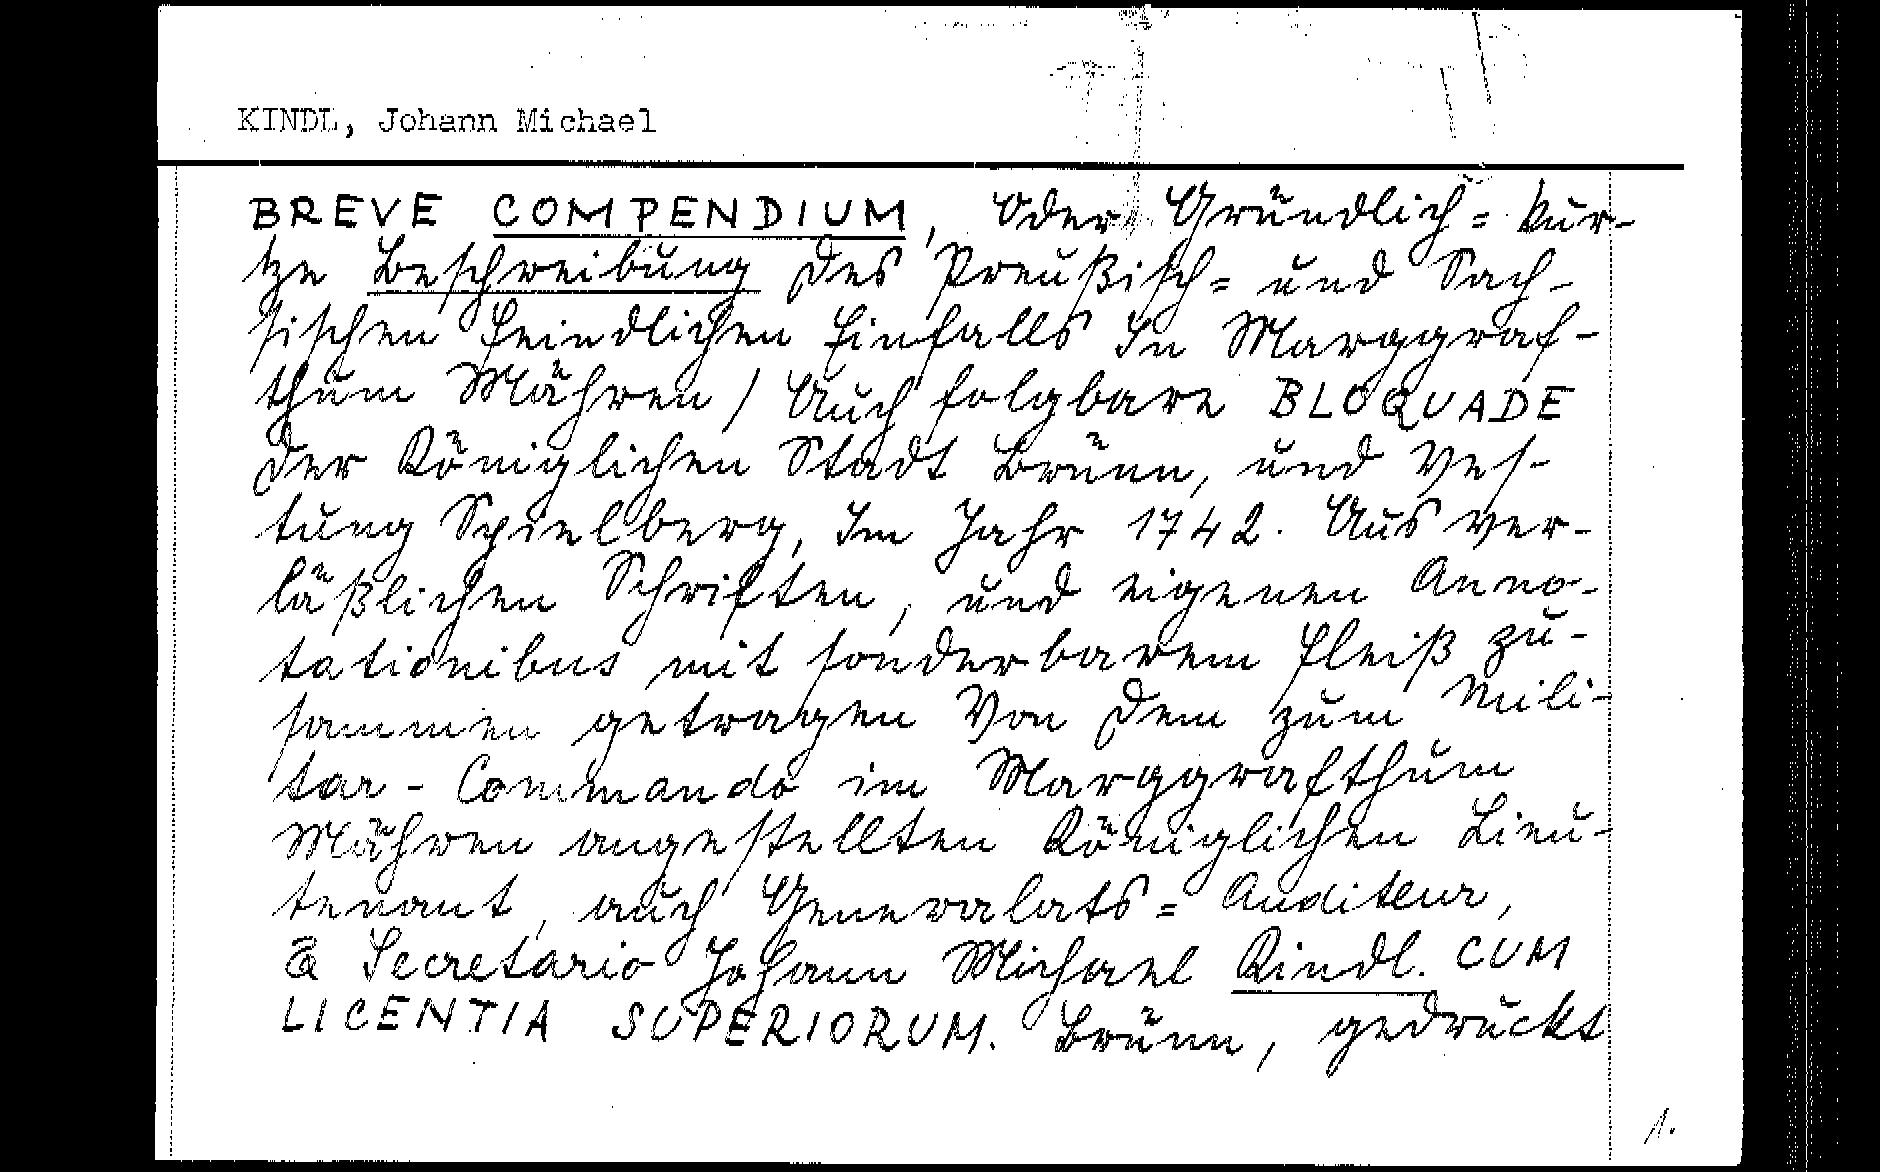 KINDL, Johann Michael
BREVE COMPENDIUM, Oder Gründlich= kur-
tze Beschreibung des Preußisch= und Säch-
sischen feindlichen Einfalls In Marggraf-
thum Mähren / Auch folgbare BLOQUADE
der Königlichen Stadt Brünn, und Ves-
tung Spielberg, Im Jahr 1742. Aus ver-
läßlichen Schriften, und eigenen Anno-
tationibus mit sonderbarem Fleiß zu-
sammen getragen Von dem zum Mili-
tar-Commando im Marggrafthum
Mähren angestellten Königlichen Lieu-
tenant, auch Generalats= Auditeur,
& Secretario Johann Michael Kindl. CUM
LICENTIA SUPERIORUM. Brünn, gedruckt
1.